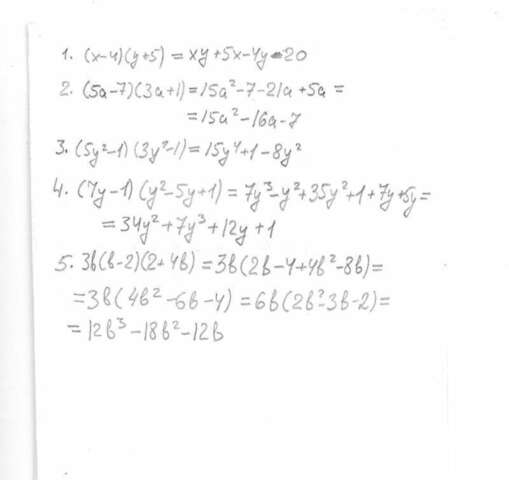 1. (x-4)(y+5) = xy+5x-4y-20
2. (5a-7)(3a+1)=15a²-7-21a+5a=
=15a²-16a-7
3. (5y²-1)(3y²-1)=15y⁴+1-8y²
4. (7y-1)(y²-5y+1)=7y³-y²+35y²+1+7y+5y=
=34y²+7y³+12y+1
5. 3b(b-2)(2+4b)=3b(2b-4+4b²-8b)=
=3b(4b²-6b-4)=6b(2b²-3b-2)=
=12b³-18b²-12b